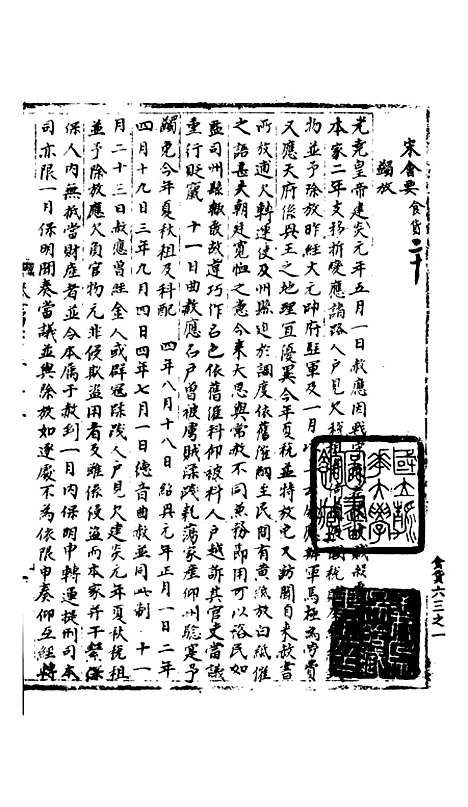 宋會要 食貨二十
蠲放
光堯皇帝建炎元年五月一日赦應因戰
本家二年支移折變應諸路人戶見欠
物並予除放昨經大元帥府駐軍及一月
又應天府係興王之地理宜優異今年夏稅並特放免又訪聞自來赦書
所放逋欠轉運使及州縣迫於調度依舊催納至民間有黃紙放白紙催
之語甚失朝廷寬恤之意今來大恩與常赦不同應務即用可以裕民如
監司州縣敢故違巧作名色依舊催科仰被科人戶越訴其官吏當議
重行貶竄 十一日曲赦應名戶曾被虜賊深踐耗蕩家產仰州縣寔予
蠲免今年夏秋租及科配 四年八月十八日紹興元年正月一日二年
四月十九日三年九月四日四年七月一日德音曲赦並同此制 十一
月二十三日赦應曾經金人或群寇蹂踐人戶見欠建炎元年夏秋稅租
並予除放應欠負官物元非侵欺盜用者及雖係侵盜而本家並干繫保
保人內無抵當財產者並令本屬于赦到一月內保明申轉運提刑司本
司亦限一月保明開奏當議並與除放如逐處不為依限申奏仰互經轉
食貨六三之一